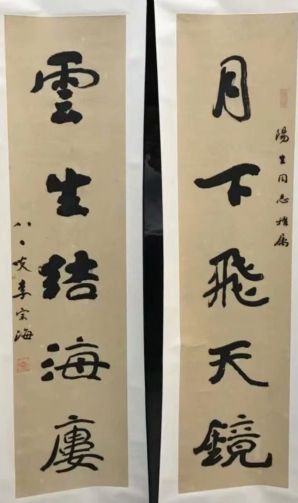 陽生同志雅属
月下飛天鏡
雲生結海廔
八〻叟李宗海